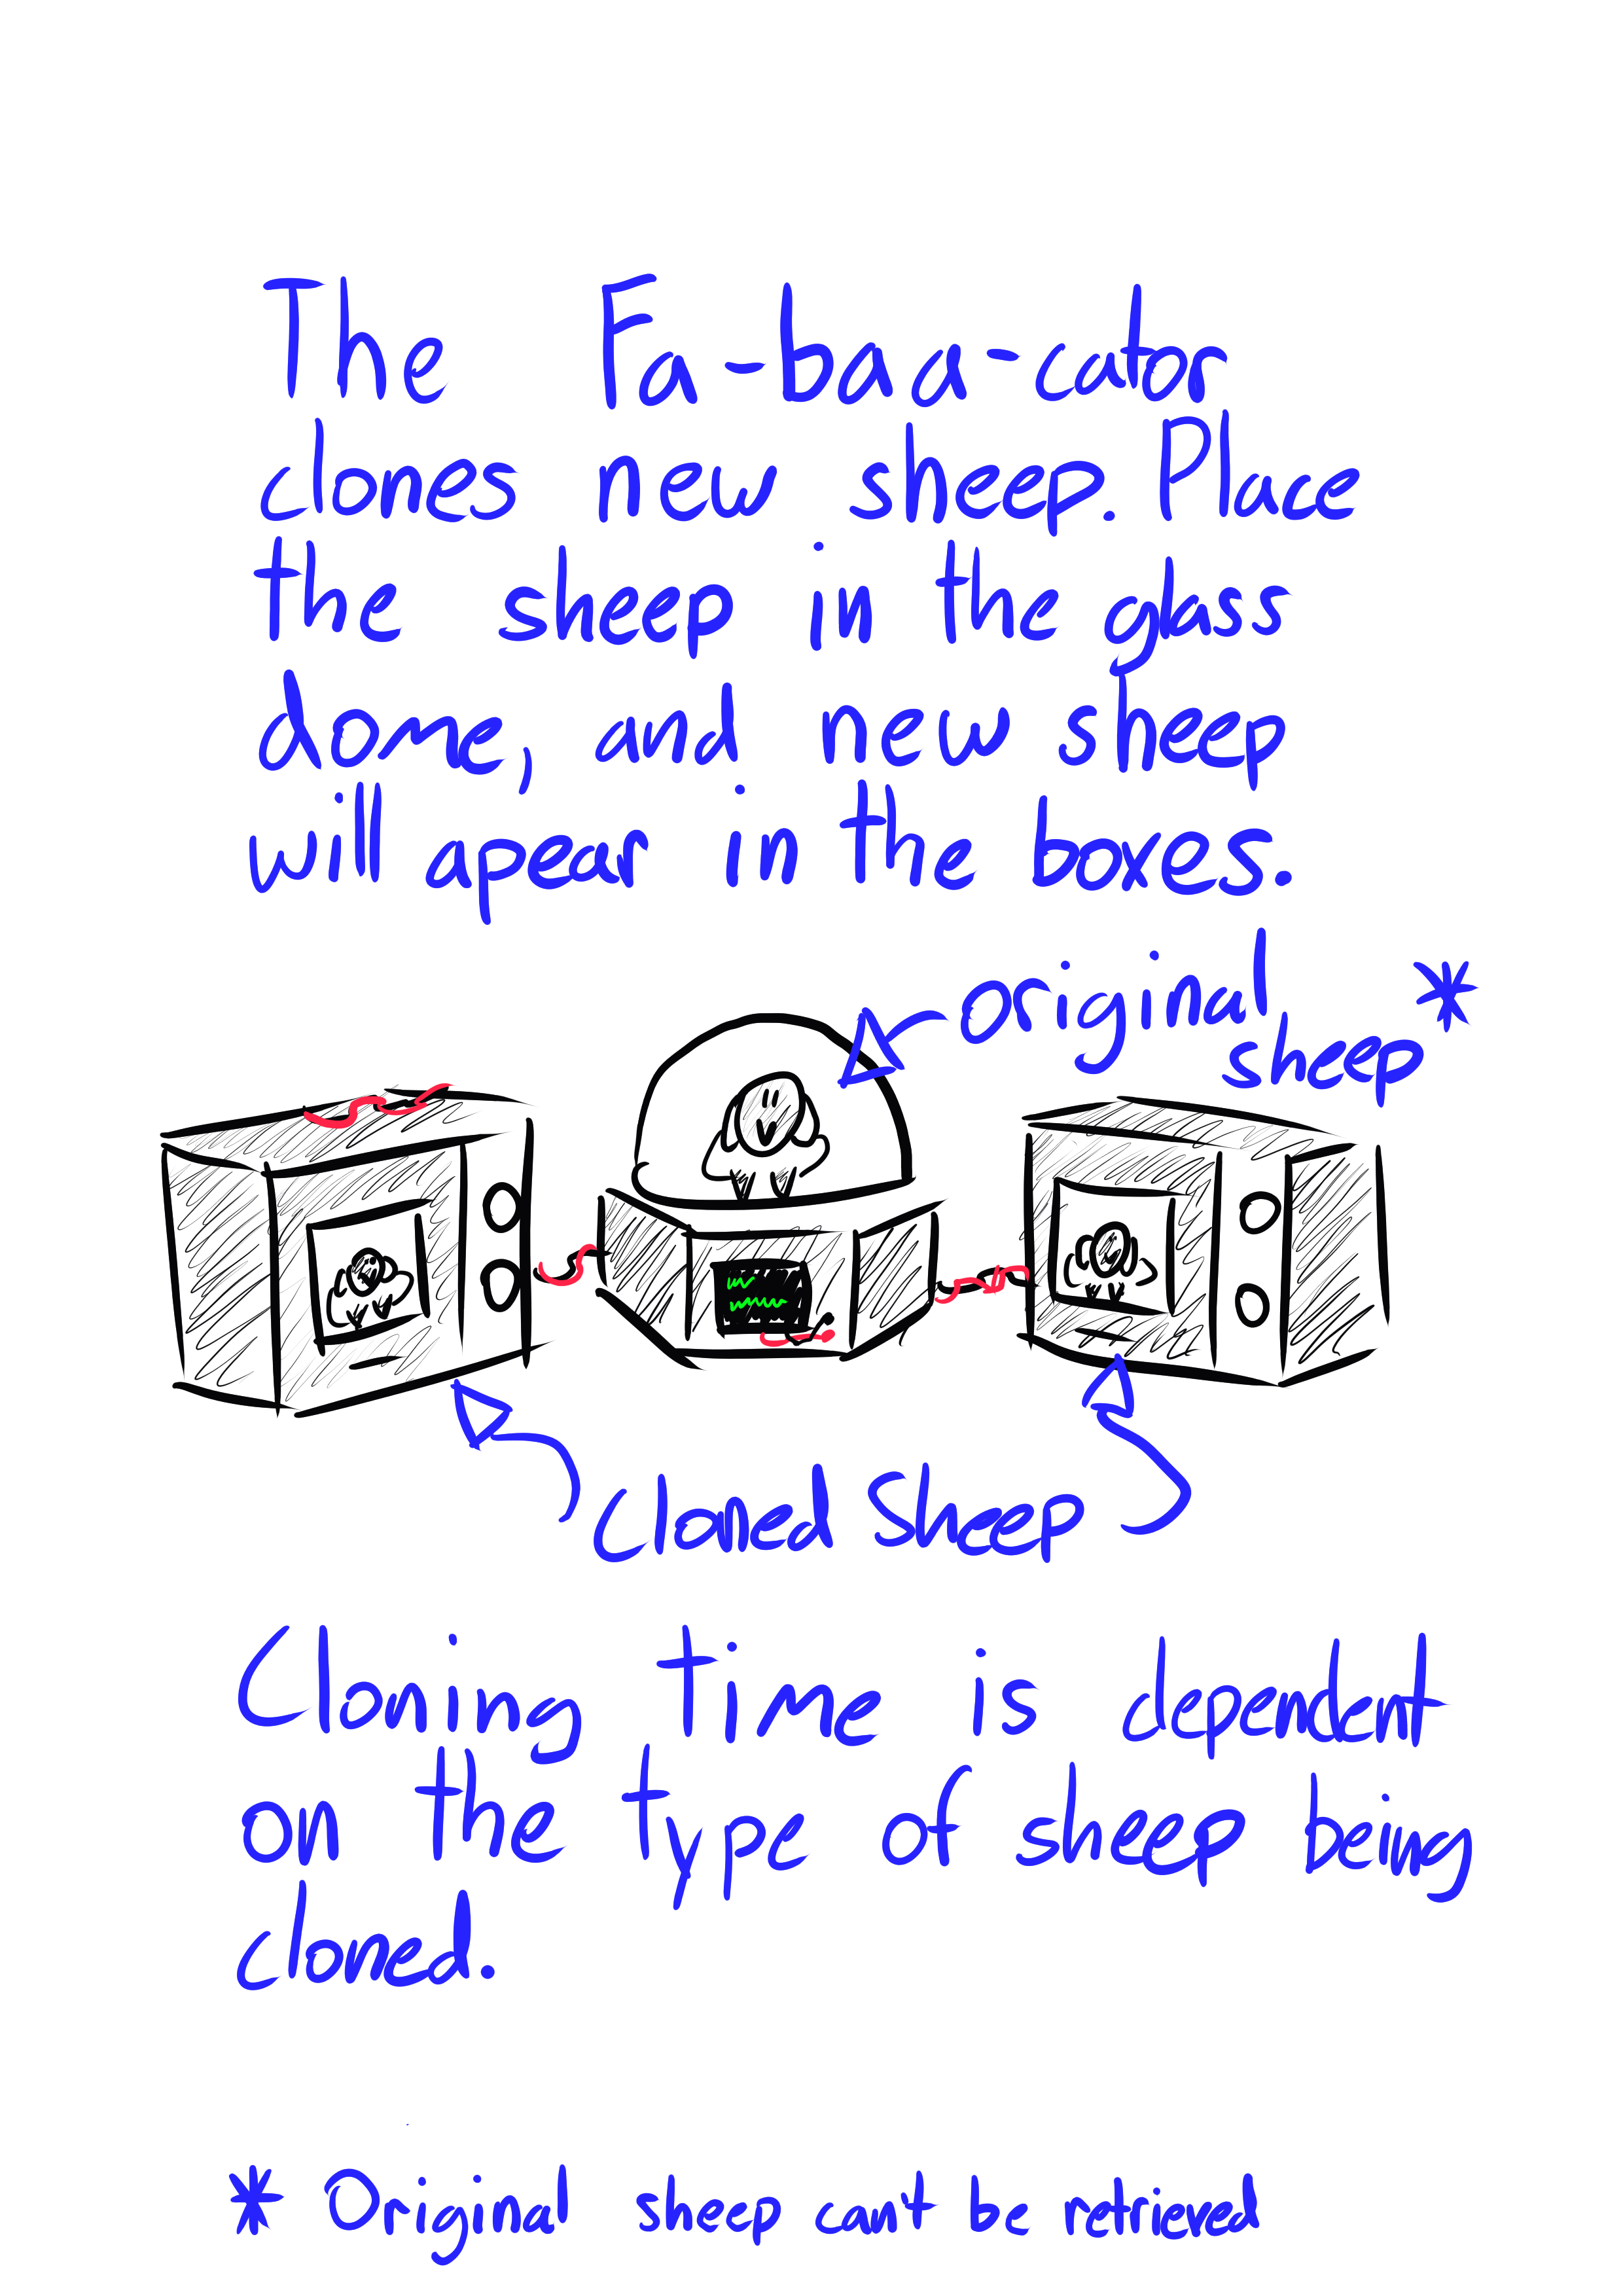 The Fa-baa-cator
clones new sheep. Place
the sheep in the glass
dome, and new sheep
will apear in the boxes.
original
sheep *
cloned sheep
Cloning time is dependent
on the type of sheep being
cloned.
* Original sheep can't be retrieved